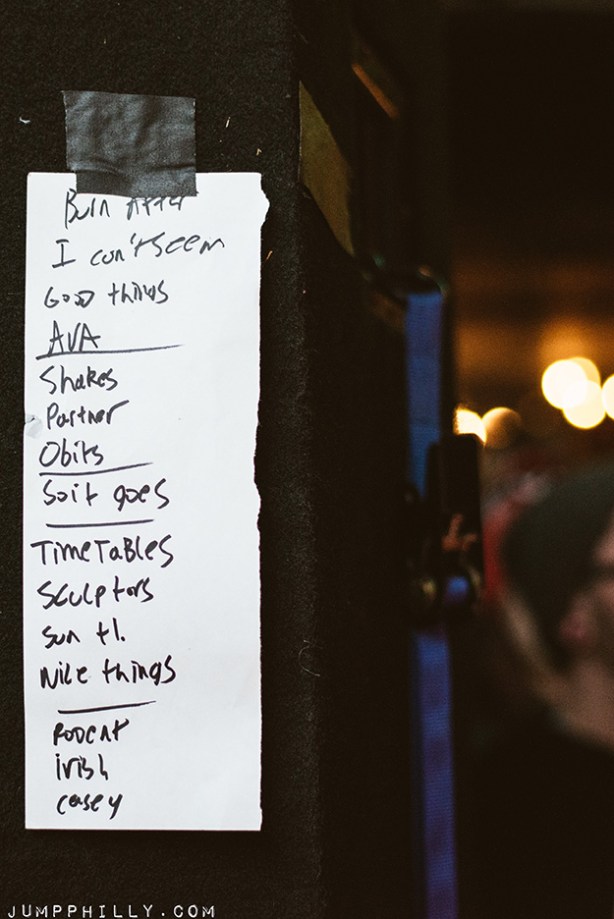 Burn After
I can't seem
Good things
AVA
Shakes
Partner
Obits
So it goes
Time Tables
Sculptors
Sun tl.
Nice things
Rodent
irish
casey
JUMPPHILLY.COM